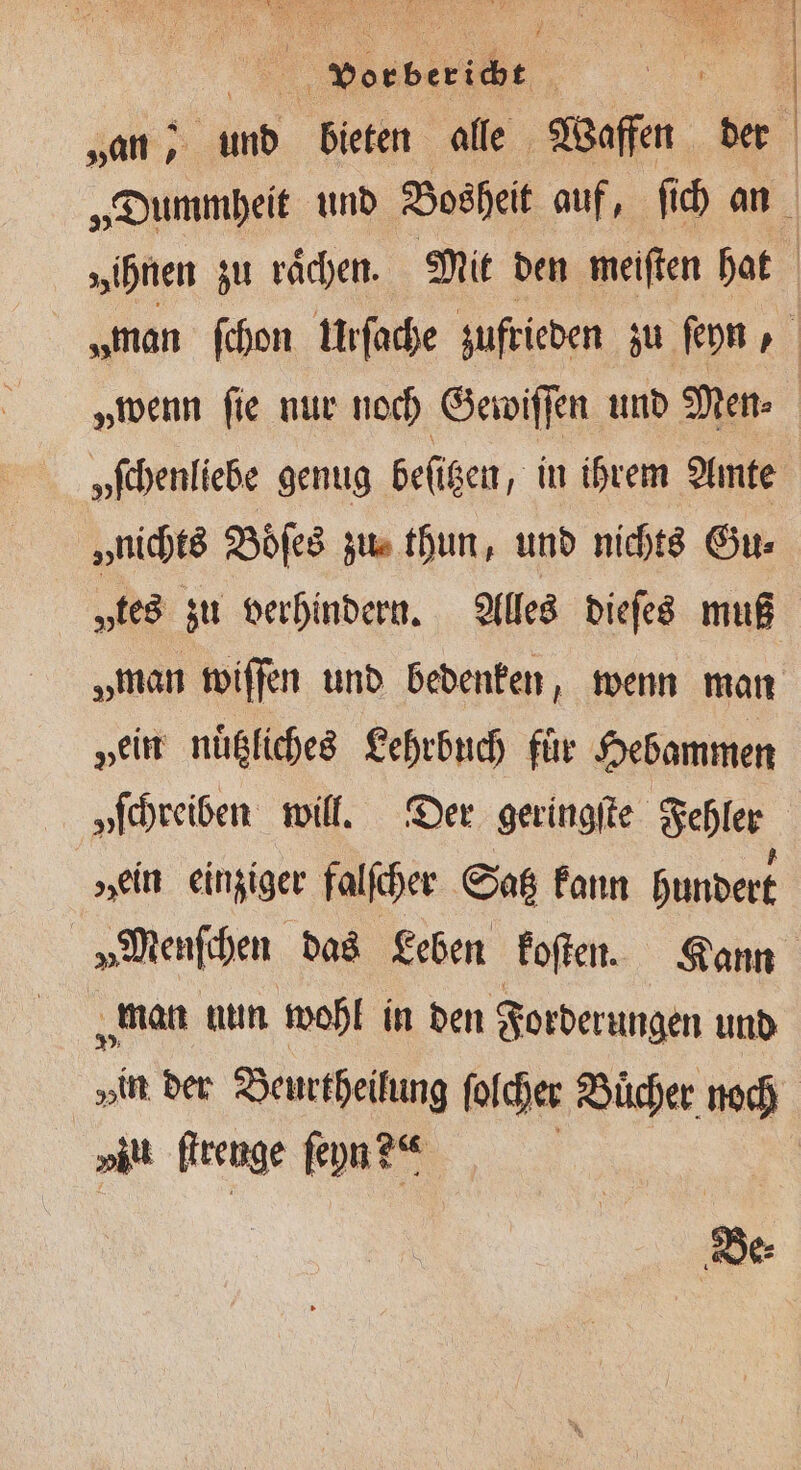 Vorbericht
„an, und bieten alle Waffen der
„Dummheit und Bosheit auf, ſich an
„ihnen zu raͤchen. Mit den meiſten hat
„man ſchon Urſache zufrieden zu ſeyn,
„wenn ſie nur noch Gewiſſen und Men⸗
„ſchenliebe genug beſitzen, in ihrem Amte
„nichts Boͤſes zu thun, und nichts Gu⸗
„tes zu verhindern. Alles dieſes muß
„man wiſſen und bedenken, wenn man
„ein nuͤtzliches Lehrbuch fuͤr Hebammen
„ſchreiben will. Der geringſte Fehler
„ein einziger falſcher Satz kann hundert
„Menſchen das Leben koſten. Kann
„man nun wohl in den Forderungen und
„in der Beurtheilung ſolcher Buͤcher noch
„zu ſtrenge ſeyn?“
Be⸗